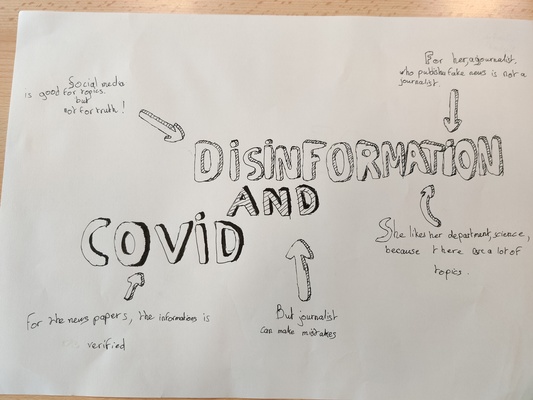 Social media
is good for topics.
but
not for truth!
For her, a journalist.
who publishs fake news is not a
journalist.
DiSiNFORMATiON
AND
COViD
She likes her department, science,
because there are a lot of
topics.
For the news papers, the informations is
verified
But journalist
can make mistakes